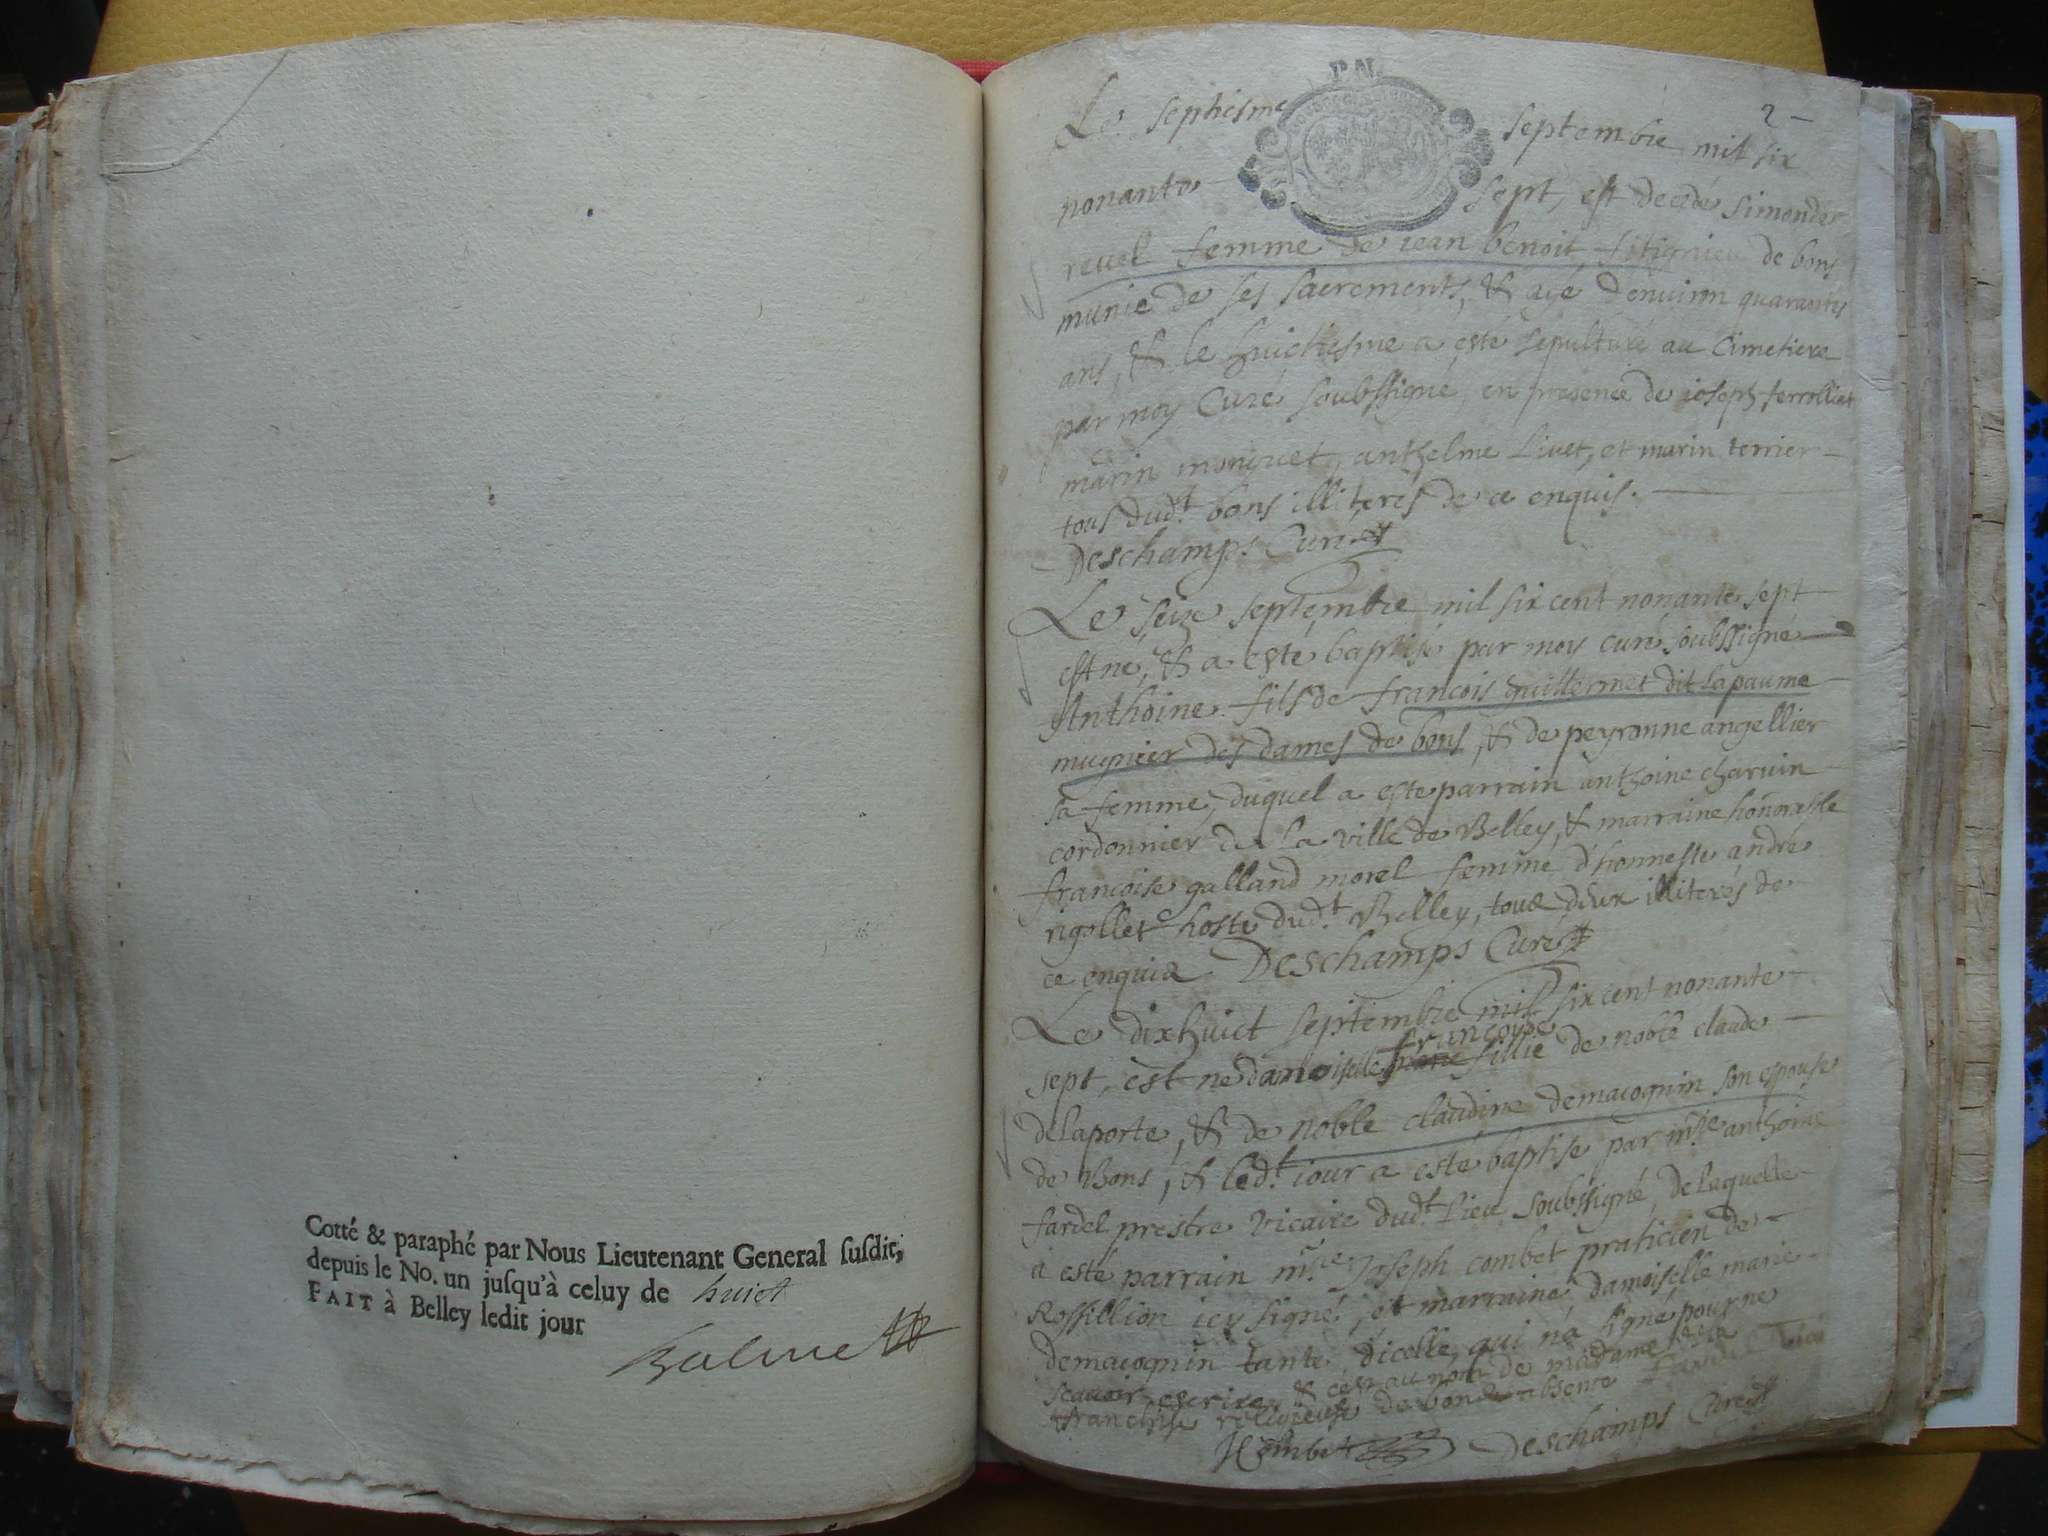 Cotté & paraphé par Nous Lieutenant General susdit,
depuis le No. un jusqu'à celuy de huict
FAIT à Belley ledit jour
Balme
2
P N.
Le septiesme septembre mil six
nonante sept, est decedé simonde
revel femme de iean benoit de bons
munie de ses sacrements, & agé d'environ quarante
ans, & le huictiesme a esté sepulturé au cimetiere
par moy Curé soubssigné en presence de ioseph ferrolliet
marin monguet, anthelme Livet, et marin terrier
tous dud.t bons illiterés de ce enquis.
Deschamps Curé
Le seize septembre mil six cent nonante sept
est né, & a esté baptisé par moy curé soubssigné
Anthoine fils de francois guillermet dit Lapaume
mugnier des dames de bons, & de peyronne angellier
sa femme, duquel a este parrain anthoine charvin
cordonnier de la ville de Belley, & marraine honorable
francoise galland morel femme d'honneste andré
rigollet hoste dud.t Belley, tous deux illiterés de
ce enquis Deschamps Curé
Le dixhuict septembre mil six cent nonante
sept, est né damoiselle francoyse fillie de noble claude
delaporte, & de noble claudine demacognin son espouse
de Bons, & led.t iour a esté baptisé par m.re anthoine
fardel prestre vicaire dud.t Lieu soubssigné, de laquelle
a esté parrain m.re Joseph combet praticien de
Rossillion icy signé, et marraine damoiselle marie
demacognin tante d'icelle, qui n'a signé pour ne
scavoir escrire, & c'est au nom de madame
francoise religieuse de bons absente Fardel Vic
JCombet Deschamps Curé